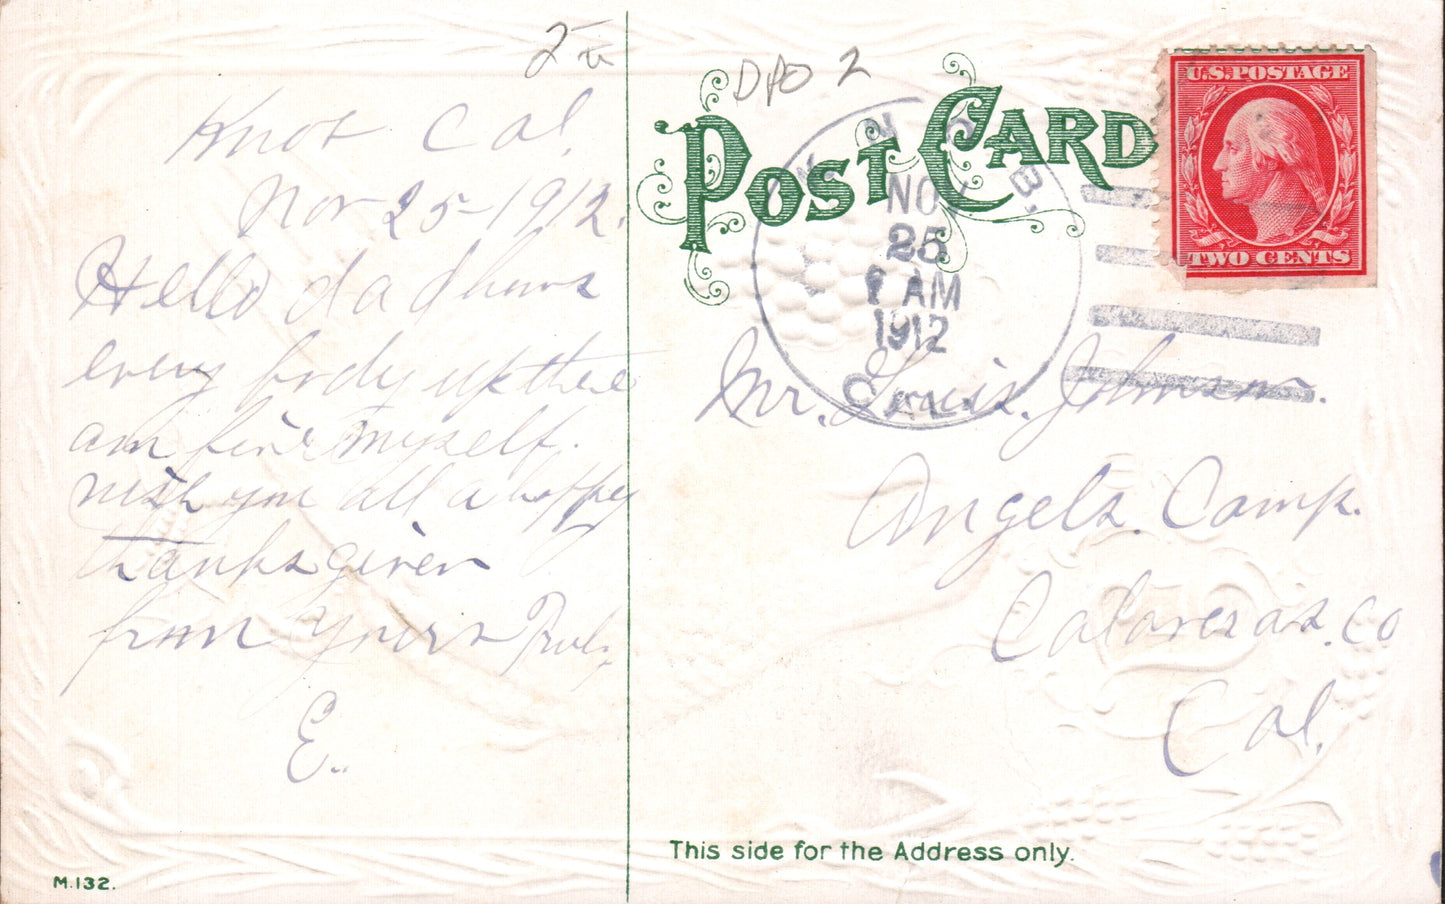 Knob Cal.
Nov 25-1912.
Hello dad hows
every body up there
am fine myself.
wish you all a happy
thanks given
from yours Truly
E..
DPO 2
POST CARD
U.S. POSTAGE
TWO CENTS
KNOB.
NOV
25
AM
1912
CAL.
Mr. Louis. Johnson.
Angels. Camp.
Calaveras. Co
Cal.
This side for the Address only.
M.132.